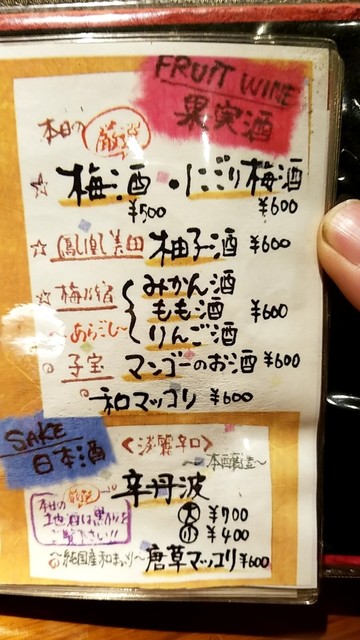 FRUIT WINE
果実酒
本日の厳選
☆ 梅酒 ・にごり梅酒
¥500 ¥600
☆ 鳳凰美田 柚子酒 ¥600
☆ 梅乃宿 みかん酒
～あらごし～ もも酒 ¥600
りんご酒
子宝 マンゴーのお酒 ¥600
和マッコリ ¥600
SAKE
日本酒
＜淡麗辛口＞
～本醸造～
辛丹波
大 ¥700
小 ¥400
本日の
地酒は黒板を
ご覧下さい!!
純国産和まっこり～唐草マッコリ ¥600